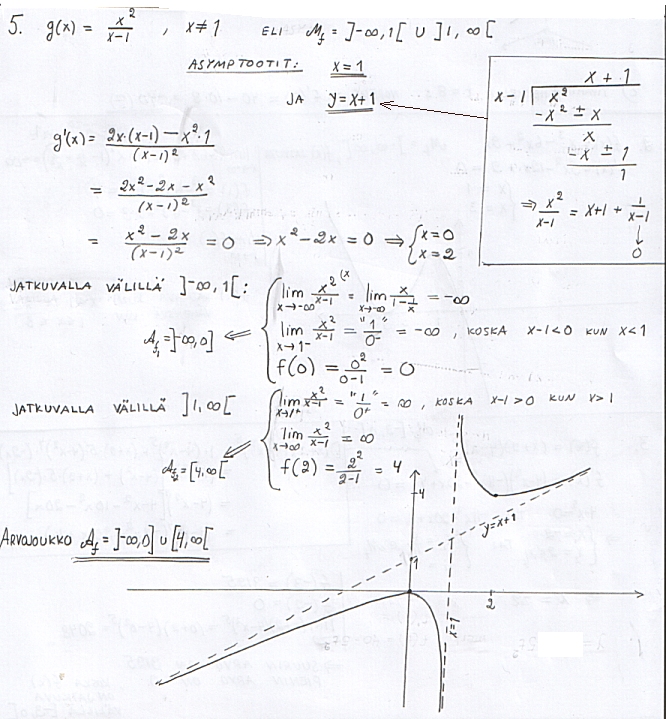 5. g(x) = x²/(x-1) , x≠1 ELI M_f = ]-∞,1[ U ]1,∞[
ASYMPTOOTIT: x=1
JA y=x+1
x + 1
x-1 | x²
-x² ± x
x
-x ± 1
1
⇒ x²/(x-1) = x+1 + 1/(x-1)
↓
0
g'(x) = (2x·(x-1) - x²·1)/(x-1)²
= (2x²-2x-x²)/(x-1)²
= (x²-2x)/(x-1)² = 0 ⇒ x²-2x = 0 ⇒ { x=0
x=2
JATKUVALLA VÄLILLÄ ]-∞,1[: { lim x→-∞ x²/(x-1) (x = lim x→-∞ x/(1-1/x) = -∞
A_f₁ = ]-∞,0] ⇐ lim x→1- x²/(x-1) = "1/0-" = -∞ , KOSKA x-1<0 KUN x<1
f(0) = 0²/(0-1) = 0
JATKUVALLA VÄLILLÄ ]1,∞[ { lim x→1+ x²/(x-1) = "1/0+" = ∞ , KOSKA x-1>0 KUN x>1
lim x→∞ x²/(x-1) = ∞
A_f₂ = [4,∞[ ⇐ f(2) = 2²/(2-1) = 4
ARVOJOUKKO A_f = ]-∞,0] U [4,∞[
4
y=x+1
1
x=1
2